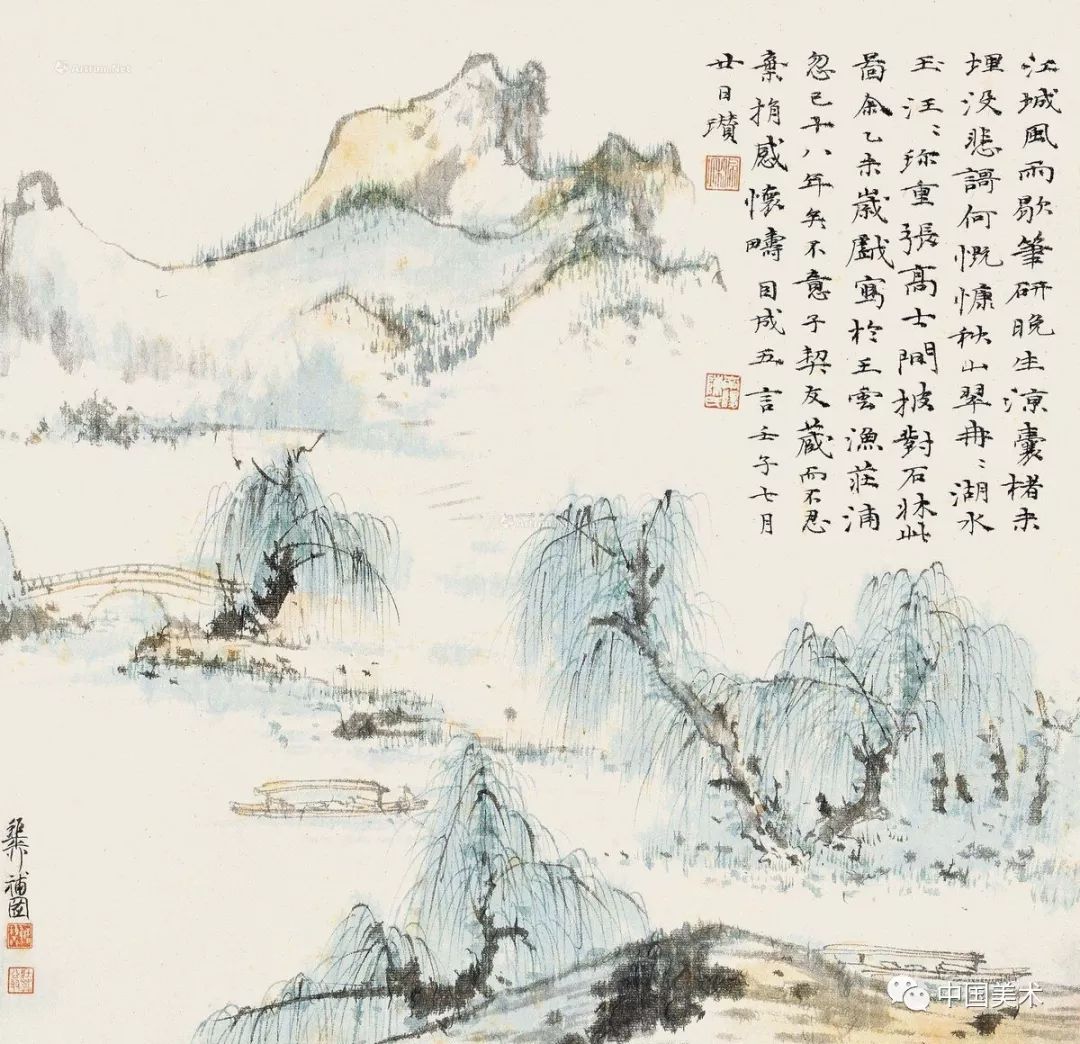 江城風雨歇筆研晚生涼囊楮未
埋没悲謌何慨慷秋山翠冉〻湖水
玉汪〻珎重張高士閒披對石牀此
啚余乙未歲戲寫於王雲漁莊浦
忽已十八年矣不意子契友藏而不忍
棄捐感懷疇因成五言壬子七月
廿日瓚
補图
Artron.Net
中国美术